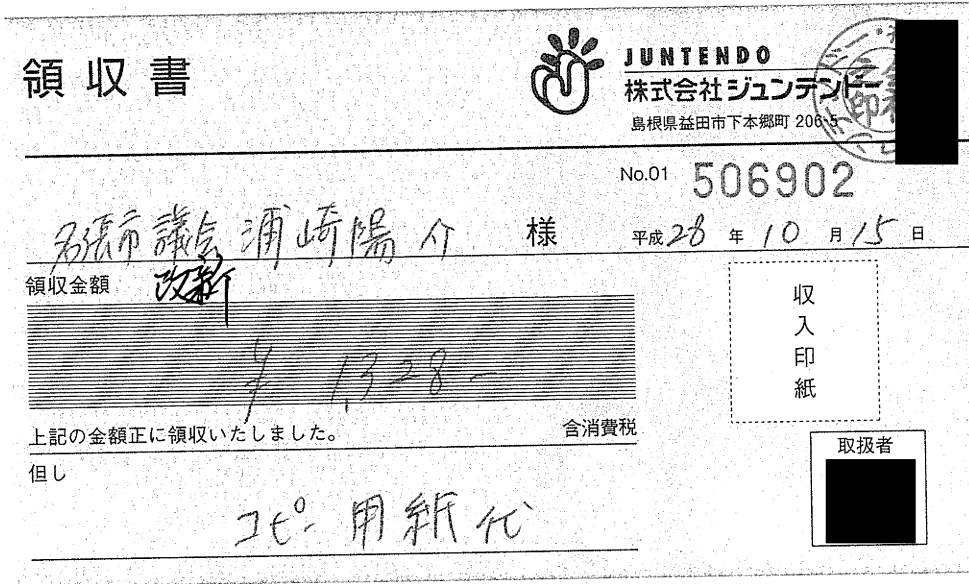 領収書
JUNTENDO
株式会社ジュンテンドー
島根県益田市下本郷町 206-5
No.01 506902
名張市議会 浦崎陽介 様
平成28年10月15日
改新
領収金額
¥1,328-
収入印紙
上記の金額正に領収いたしました。
含消費税
取扱者
但し
コピー用紙代